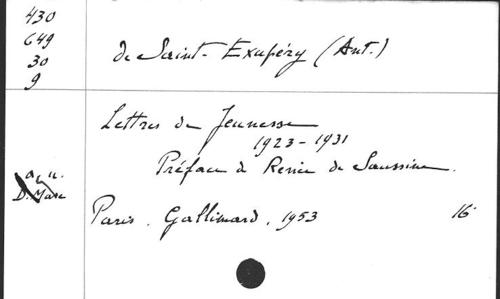 430
649
30
9
de Saint-Exupéry (Ant.)
Lettres de Jeunesse
1923-1931
Préface de Renée de Saussine.
Paris. Gallimard. 1953 16°